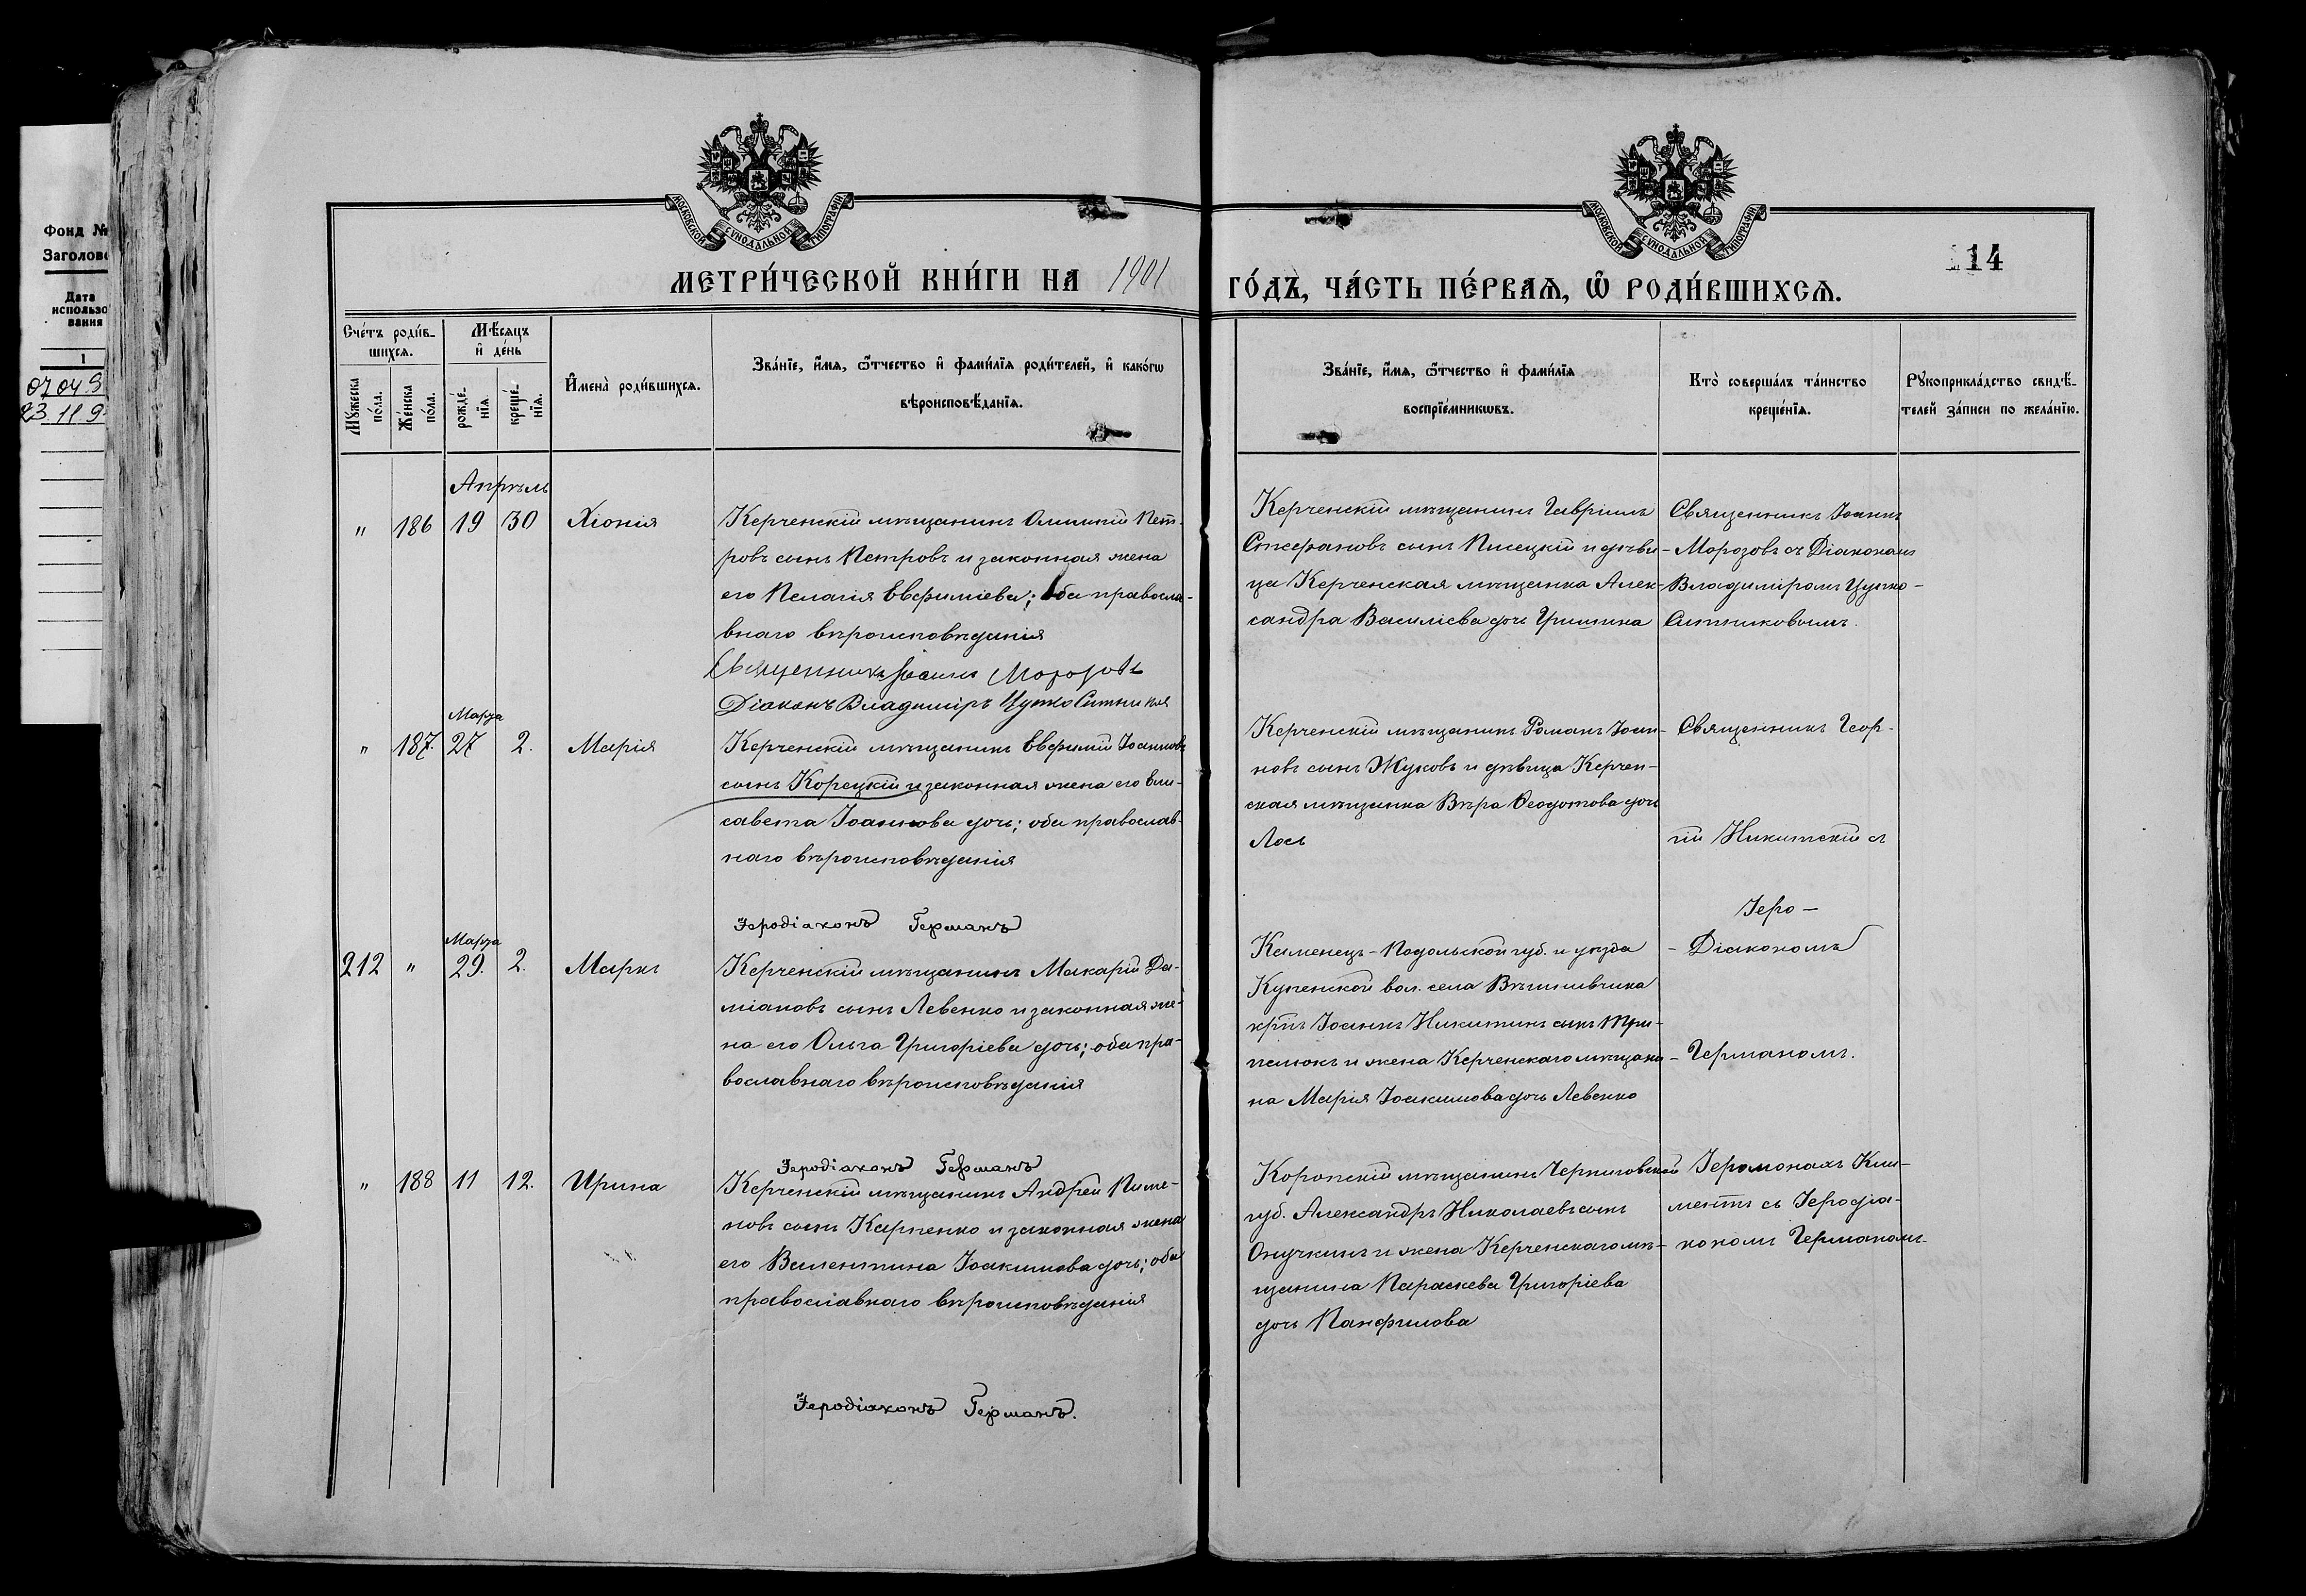 Фонд №
Заголов
Дата
использо
вания
1
07 04 9
23.11.9
МОСКОВСКОЙ СѴНОДАЛЬНОЙ ТИПОГРАФІИ
МОСКОВСКОЙ СѴНОДАЛЬНОЙ ТИПОГРАФІИ
114
МЕТРИ́ЧЕСКОЙ КНИ́ГИ НА 1901 ГО́ДЪ, ЧА́СТЬ ПЕ́РВАѦ, Ѡ҆ РОДИ́ВШИХСѦ.
Сче́тъ роди́в-
шихсѧ.
Мѣ́сѧцъ
и҆ де́нь
Мꙋ́жеска
по́ла.
Же́нска
по́ла.
рожде́-
нїѧ.
креще́-
нїѧ.
И҆мена̀ роди́вшихсѧ.
Зва́нїе, и҆́мѧ, ѻ҆́тчество и҆ фами́лїѧ роди́телей, и҆ како́гѡ
вѣроисповѣ́данїѧ.
Зва́нїе, и҆́мѧ, ѻ҆́тчество и҆ фами́лїѧ
воспрїе́мникѡвъ.
Кто̀ соверша́лъ та́инство
креще́нїѧ.
Рꙋкоприкла́дство свидѣ́-
телей за́писи по жела́нїю.
Апрѣль
" 186 19 30 Хіонія
Керченскій мѣщанинъ Пет-
ровъ сынъ Петровъ и законная жена
его Пелагія Евфиміева; оба правосла-
внаго вѣроисповѣданія
Священникъ Іоаннъ Морозовъ
Діаконъ Владиміръ Цупко Ситников
Керченскій мѣщанинъ Гавріилъ
Стефановъ сынъ Писецкій и дѣви-
ца Керченская мѣщанка Алек-
сандра Василіева дочь Гришина
Священникъ Іоаннъ
Морозовъ съ Діакономъ
Владиміромъ Цупко-
Ситниковымъ.
Марта
" 187. 27 2. Марія
Керченскій мѣщанинъ Евфимій Іоанновъ
сынъ Корецкій и законная жена его Ели-
савета Іоаннова дочь; оба православ-
наго вѣроисповѣданія
Іеродіаконъ Германъ
Керченскій мѣщанинъ Романъ Іоан-
новъ сынъ Жуковъ и дѣвица Керчен-
ская мѣщанка Вѣра Ѳеодотова дочь
Лось
Священникъ Геор-
гій Никитскій съ
Іеро-
Діакономъ
Германомъ.
Марта
212 " 29. 2. Маркъ
Керченскій мѣщанинъ Макарій Да-
міановъ сынъ Левенко и законная же-
на его Ольга Григоріева дочь; оба пра-
вославнаго вѣроисповѣданія
Іеродіаконъ Германъ
Каменецъ-Подольской губ. и уѣзда
Купенской вол. села
крн. Іоаннъ Никитинъ сынъ Три-
пелюкъ и жена Керченскаго мѣщани-
на Марія Іоакимова дочь Левенко
" 188 11 12. Ирина
Керченскій мѣщанинъ Андрей Пиме-
новъ сынъ Карпенко и законная жена
его Валентина Іоакимова дочь; оба
православнаго вѣроисповѣданія
Іеродіаконъ Германъ.
Коропскій мѣщанинъ Черниговской
губ. Александръ Николаевъ сынъ
Онучкинъ и жена Керченскаго мѣ-
щанина Параскева Григоріева
дочь Панфилова
Іеромонахъ Кли-
ментъ съ Іеродіа-
кономъ Германомъ.